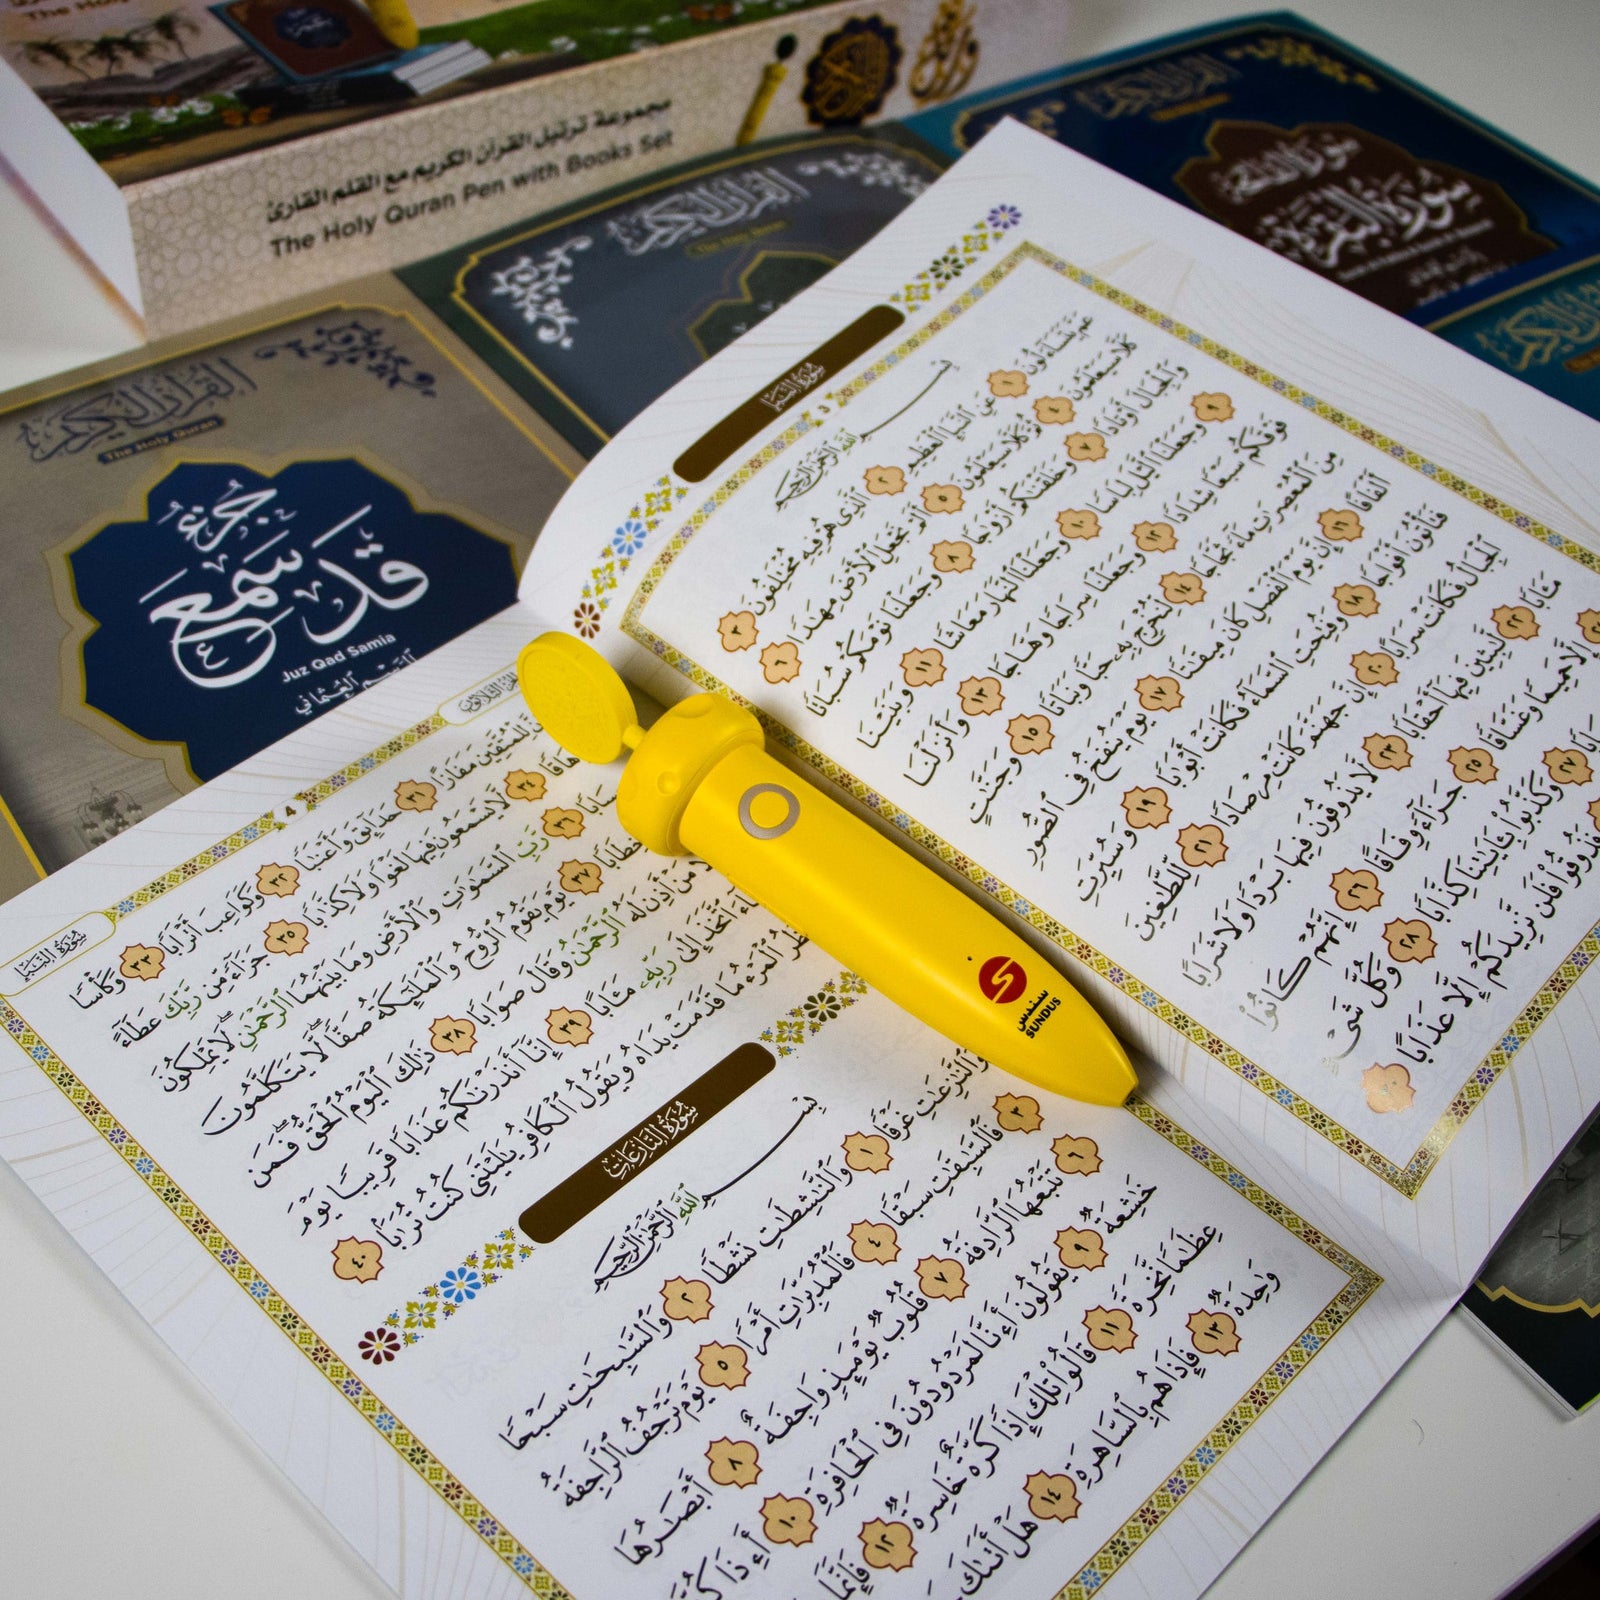 The Holy
مجموعة ترتيل القرآن الكريم مع القلم القارئ
The Holy Quran Pen with Books Set
القرآن الكريم
The Holy Quran
جزء
قد سمع
Juz Qad Samia
القرآن الكريم
The Holy Quran
القرآن الكريم
سورة البقرة
سُورَةُ النَّبَإِ
3
بِسْمِ اللَّهِ الرَّحْمَٰنِ الرَّحِيمِ
عَمَّ يَتَسَاءَلُونَ ١ عَنِ ٱلنَّبَإِ ٱلْعَظِيمِ ٢ ٱلَّذِى هُمْ فِيهِ مُخْتَلِفُونَ ٣
كَلَّا سَيَعْلَمُونَ ٤ ثُمَّ كَلَّا سَيَعْلَمُونَ ٥ أَلَمْ نَجْعَلِ ٱلْأَرْضَ مِهَٰدًا ٦
وَٱلْجِبَالَ أَوْتَادًا ٧ وَخَلَقْنَٰكُمْ أَزْوَٰجًا ٨ وَجَعَلْنَا نَوْمَكُمْ سُبَاتًا
٩ وَجَعَلْنَا ٱلَّيْلَ لِبَاسًا ١٠ وَجَعَلْنَا ٱلنَّهَارَ مَعَاشًا ١١ وَبَنَيْنَا
فَوْقَكُمْ سَبْعًا شِدَادًا ١٢ وَجَعَلْنَا سِرَاجًا وَهَّاجًا ١٣ وَأَنزَلْنَا
مِنَ ٱلْمُعْصِرَٰتِ مَآءً ثَجَّاجًا ١٤ لِّنُخْرِجَ بِهِۦ حَبًّا وَنَبَاتًا ١٥ وَجَنَّٰتٍ
أَلْفَافًا ١٦ إِنَّ يَوْمَ ٱلْفَصْلِ كَانَ مِيقَٰتًا ١٧ يَوْمَ يُنفَخُ فِى ٱلصُّورِ
فَتَأْتُونَ أَفْوَاجًا ١٨ وَفُتِحَتِ ٱلسَّمَآءُ فَكَانَتْ أَبْوَٰبًا ١٩ وَسُيِّرَتِ
ٱلْجِبَالُ فَكَانَتْ سَرَابًا ٢٠ إِنَّ جَهَنَّمَ كَانَتْ مِرْصَادًا ٢١ لِّلطَّٰغِينَ
مَـَٔابًا ٢٢ لَّٰبِثِينَ فِيهَآ أَحْقَابًا ٢٣ لَّا يَذُوقُونَ فِيهَا بَرْدًا وَلَا شَرَابًا
٢٤ إِلَّا حَمِيمًا وَغَسَّاقًا ٢٥ جَزَآءً وِفَاقًا ٢٦ إِنَّهُمْ كَانُوا۟
٢٧ وَكَذَّبُوا۟ بِـَٔايَٰتِنَا كِذَّابًا ٢٨ وَكُلَّ شَىْءٍ
فَذُوقُوا۟ فَلَن نَّزِيدَكُمْ إِلَّا عَذَابًا ٣٠
سندس
SUNDUS
سُورَةُ النَّبَإِ
4
لِلْمُتَّقِينَ مَفَازًا ٣١ حَدَآئِقَ وَأَعْنَٰبًا ٣٢ وَكَوَاعِبَ أَتْرَابًا ٣٣ وَكَأْسًا
٣٤ لَّا يَسْمَعُونَ فِيهَا لَغْوًا وَلَا كِذَّٰبًا ٣٥ جَزَآءً مِّن رَّبِّكَ عَطَآءً
٣٦ رَّبِّ ٱلسَّمَٰوَٰتِ وَٱلْأَرْضِ وَمَا بَيْنَهُمَا ٱلرَّحْمَٰنِ لَا يَمْلِكُونَ
٣٧ يَوْمَ يَقُومُ ٱلرُّوحُ وَٱلْمَلَٰٓئِكَةُ صَفًّا لَّا يَتَكَلَّمُونَ
مَنْ أَذِنَ لَهُ ٱلرَّحْمَٰنُ وَقَالَ صَوَابًا ٣٨ ذَٰلِكَ ٱلْيَوْمُ ٱلْحَقُّ فَمَن
ٱتَّخَذَ إِلَىٰ رَبِّهِۦ مَـَٔابًا ٣٩ إِنَّآ أَنذَرْنَٰكُمْ عَذَابًا قَرِيبًا يَوْمَ
ٱلْمَرْءُ مَا قَدَّمَتْ يَدَاهُ وَيَقُولُ ٱلْكَافِرُ يَٰلَيْتَنِى كُنتُ تُرَٰبًۢا ٤٠
سُورَةُ النَّازِعَاتِ
بِسْمِ اللَّهِ الرَّحْمَٰنِ الرَّحِيمِ
وَٱلنَّٰزِعَٰتِ غَرْقًا ١ وَٱلنَّٰشِطَٰتِ نَشْطًا ٢ وَٱلسَّٰبِحَٰتِ سَبْحًا
٣ فَٱلسَّٰبِقَٰتِ سَبْقًا ٤ فَٱلْمُدَبِّرَٰتِ أَمْرًا ٥ يَوْمَ تَرْجُفُ ٱلرَّاجِفَةُ
٦ تَتْبَعُهَا ٱلرَّادِفَةُ ٧ قُلُوبٌ يَوْمَئِذٍ وَاجِفَةٌ ٨ أَبْصَٰرُهَا
خَٰشِعَةٌ ٩ يَقُولُونَ أَءِنَّا لَمَرْدُودُونَ فِى ٱلْحَافِرَةِ ١٠ أَءِذَا كُنَّا
عِظَٰمًا نَّخِرَةً ١١ قَالُوا۟ تِلْكَ إِذًا كَرَّةٌ خَاسِرَةٌ ١٢ فَإِنَّمَا
وَٰحِدَةٌ ١٣ فَإِذَا هُم بِٱلسَّاهِرَةِ ١٤ هَلْ أَتَىٰكَ